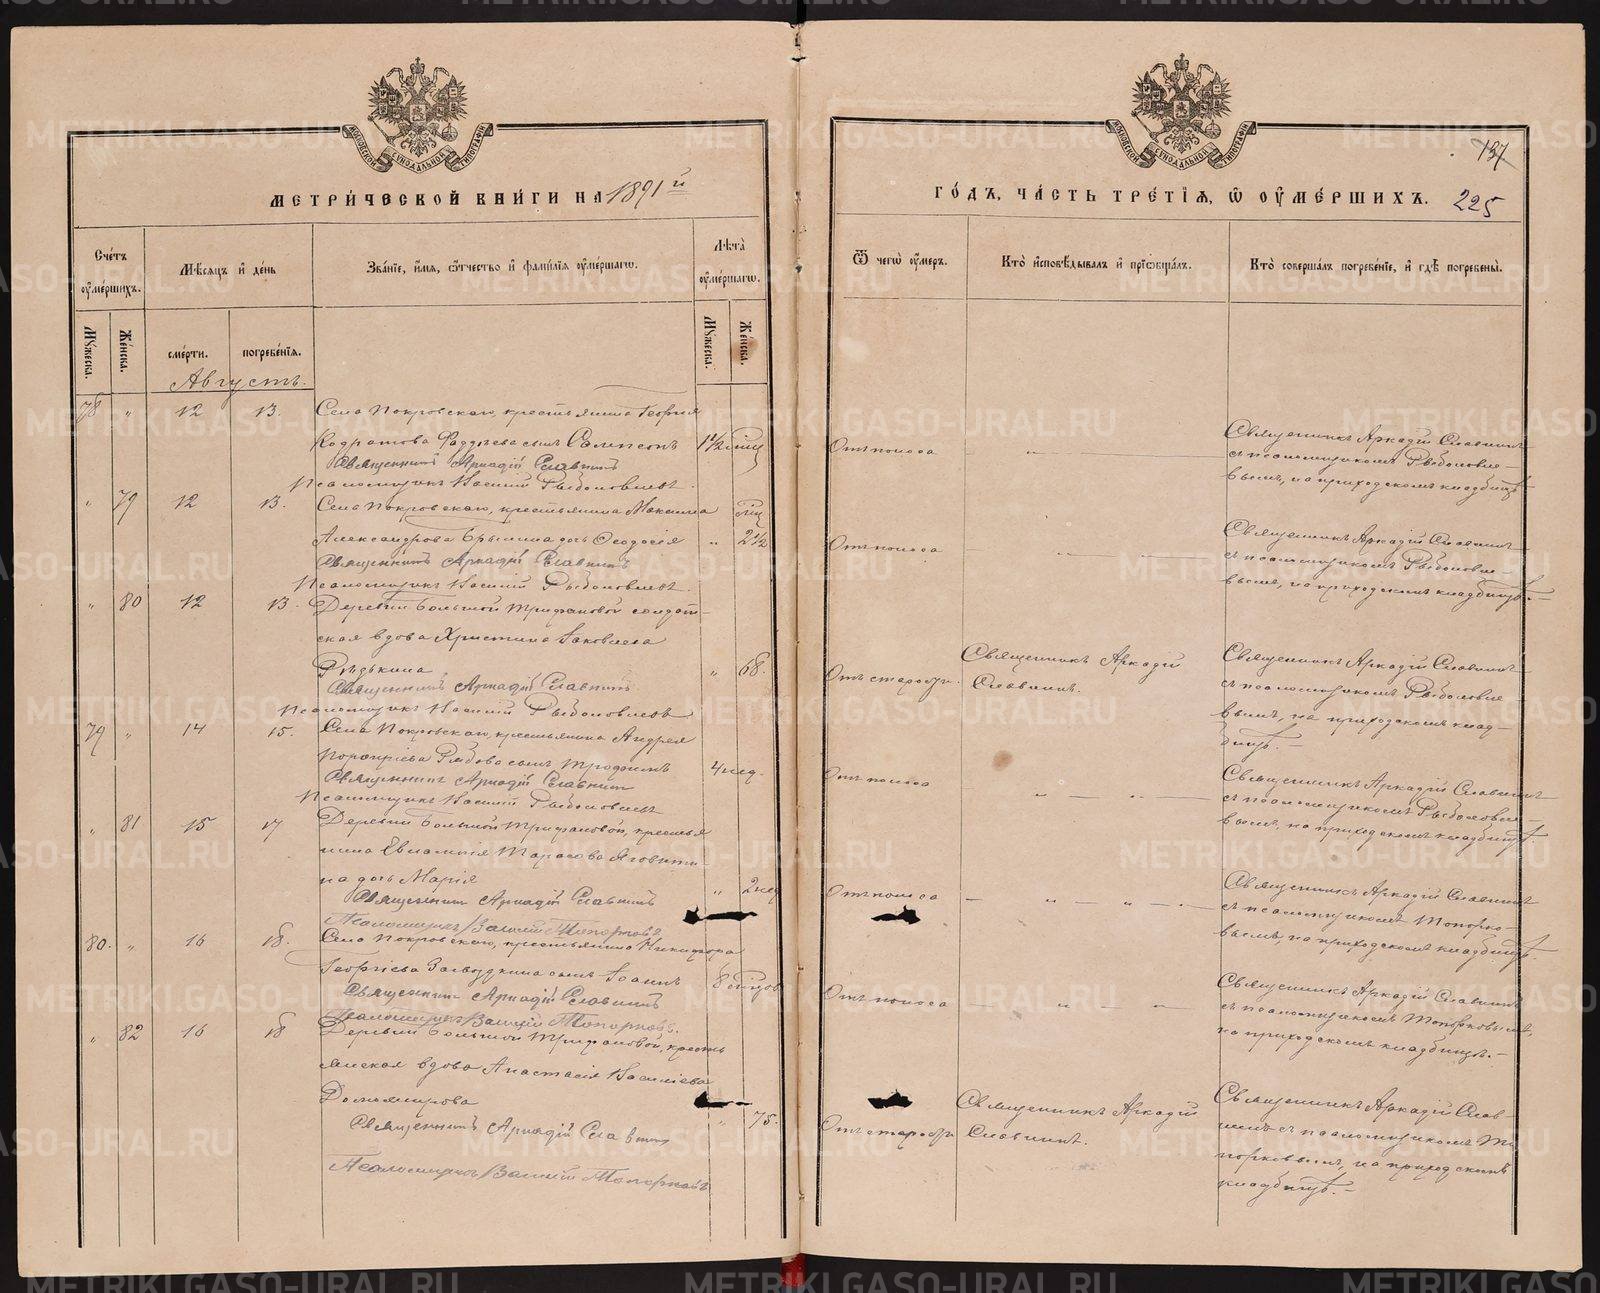 МЕТРИ́ЧЕСКОЙ КНИ́ГИ НА 1891й
ГО́ДЪ, ЧА́СТЬ ТРЕ́ТІЯ, Ѽ ОУМЕ́РШИХЪ.
137
225
Сче́тъ оумершихъ.
Мѣсяцъ и де́нь
Зва́ніе, и́мя, о́тчество и фами́лія оуме́ршагѡ.
Лѣта̀ оуме́ршагѡ.
Ѿ чегѡ̀ оу́меръ.
Кто̀ исповѣ́дывалъ и прїѡбща́лъ.
Кто̀ соверша́лъ погребе́ніе, и гдѣ̀ погребены̀.
Му́жеска.
Же́нска.
сме́рти.
погребе́нія.
Му́жеска.
Же́нска.
Августъ.
78 " 12 13. Села Покровскаго, крестьянина Георгія
Кодратова Фаддѣева сынъ Сампсонъ 1 1/2 мѣс
Священникъ Аркадій Славнинъ
Псаломщикъ Василій Рыболовлевъ.
Отъ поноса
Священникъ Аркадій Славнинъ
съ псаломщикомъ Рыболовле-
вымъ, на приходскомъ кладбищѣ
" 79 12 13. Села Покровскаго, крестьянина Максима
Александрова Брылина дочь Ѳеодосія " 2 1/2
Священникъ Аркадій Славнинъ
Псаломщикъ Василій Рыболовлевъ.
Отъ поноса
Священникъ Аркадій Славнинъ
съ псаломщикомъ Рыболовле-
вымъ, на приходскомъ кладбищѣ.
" 80 12 13. Деревни Большой Трифановой солдат-
ская вдова Христина Іаковлева
Рѣдькина " 68.
Священникъ Аркадій Славнинъ
Псаломщикъ Василій Рыболовлевъ
Отъ старости.
Священникъ Аркадій
Славнинъ.
Священникъ Аркадій Славнинъ
съ псаломщикомъ Рыболовле
вымъ, на приходскомъ клад-
бищѣ.
79 " 14 15. Села Покровскаго, крестьянина Андрея
Порфиріева Рябова сынъ Трофимъ 4 нед.
Священникъ Аркадій Славнинъ
Псаломщикъ Василій Рыболовлевъ
Отъ поноса
Священникъ Аркадій Славнинъ
съ псаломщикомъ Рыболовле-
вымъ, на приходскомъ кладбищѣ.
" 81 15 17 Деревни Большой Трифановой, крестья
нина Евлампія Тарасова
на дочь Марія " 2 нед
Священникъ Аркадій Славнинъ
Псаломщикъ Василій Топорковъ
Отъ поноса
Священникъ Аркадій Славнинъ
съ псаломщикомъ Топорко-
вымъ, на приходскомъ кладбищѣ.
80. " 16 18. Села Покровскаго, крестьянина Никифора
Георгіева Загвоздкина сынъ Іоаннъ 8
Священникъ Аркадій Славнинъ
Псаломщикъ Василій Топорковъ.
Отъ поноса
Священникъ Аркадій Славнинъ
съ псаломщикомъ Топорковымъ,
на приходскомъ кладбищѣ.
" 82 16 18 Деревни Большой Трифановой, кресть
янская вдова Анастасія Василіева
Доможирова " 75.
Священникъ Аркадій Славнинъ
Псаломщикъ Василій Топорковъ
Отъ старости
Священникъ Аркадій
Славнинъ.
Священникъ Аркадій Слав-
нинъ съ псаломщикомъ То
порковымъ, на приходскомъ
кладбищѣ.
METRIKI.GASO-URAL.RU